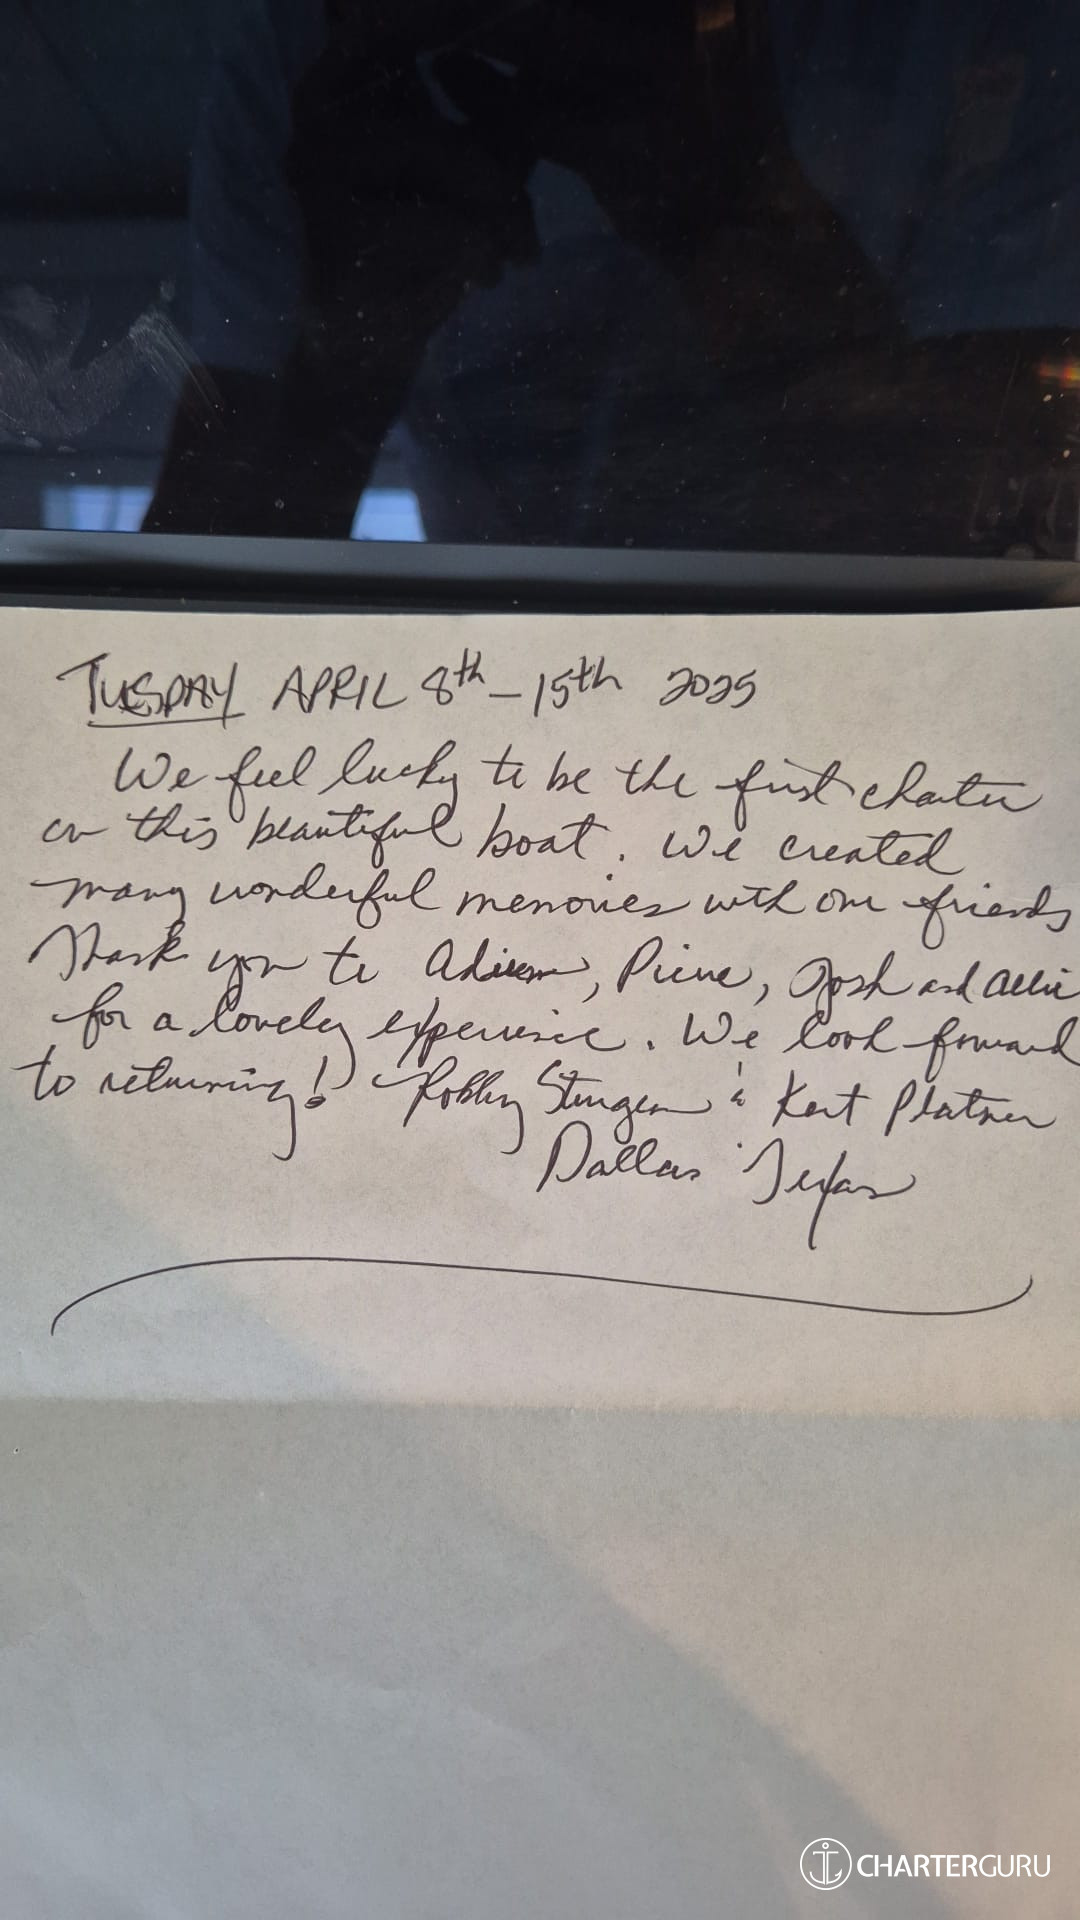 TUESDAY APRIL 8th - 15th 2025
We feel lucky to be the first charter
on this beautiful boat. We created
many wonderful memories with our friends
Thank you to Pierre, Josh and Allie
for a lovely experience. We look forward
to returning! Robby Sturgeon & Kurt Platner
Dallas Texas
CHARTERGURU